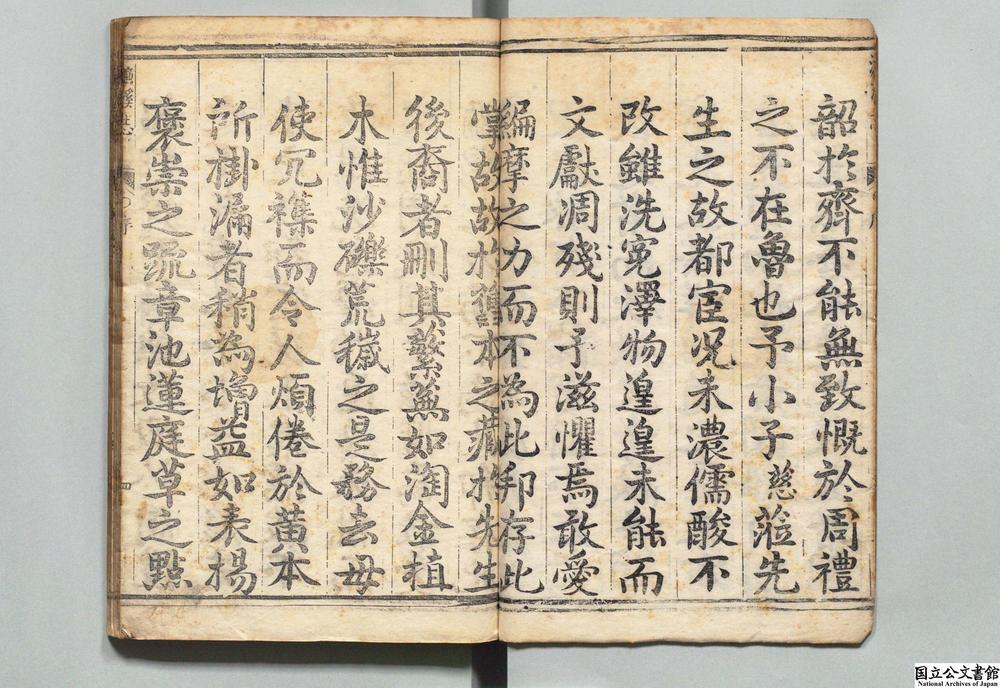 韶扵齊不能無致慨於周禮
之不在魯也予小子慈蒞先
生之故都宦況未濃儒酸不
改雖洗冤澤物遑遑未能而
文獻凋殘則予滋懼焉敢愛
編摩之力而不為此邦存此
掌故故扵舊本之藏扵先生
後裔者刪其蘩蕪如淘金植
木惟沙礫荒穢之是務去毋
使冗襍而令人煩倦於黃本
所掛漏者稍為增益如表揚
褒崇之疏章池蓮庭草之點
四
国立公文書館
National Archives of Japan